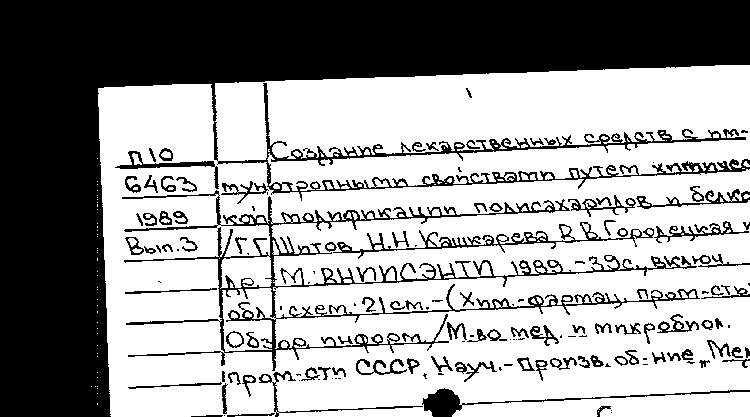 П10 Создание лекарственных средств с им-
6463 мунотропными свойствами путем химичес
1989 кой модификации полисахаридов и белко
Вып.3 /Г.Г. Шитов, Н.Н. Кашкарева, В.В. Городецкая и
др. -М.: ВНИИСЭНТИ, 1989. -39с., включ.
обл.: схем.; 21см. -(Хим.-фармац. пром-сть:
Обзор. информ. /М-во мед. и микробиол.
пром-сти СССР, Науч.-произв. об-ние „Мед